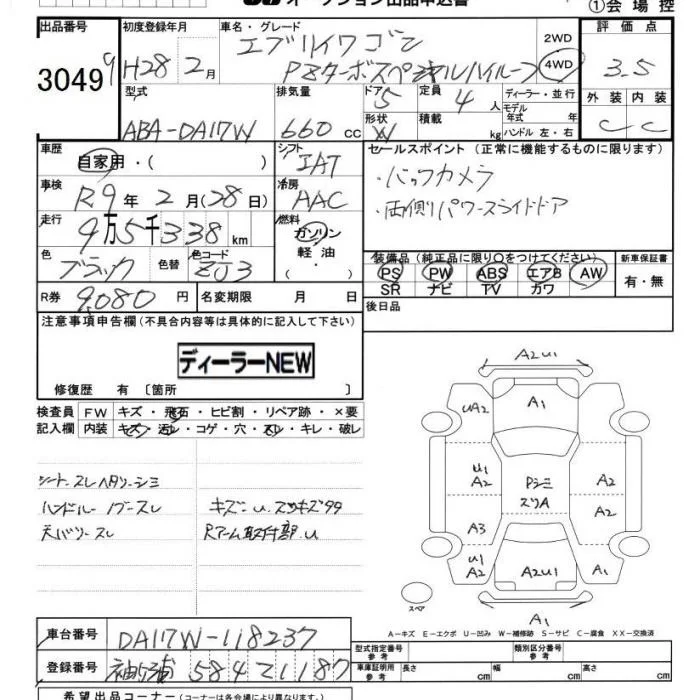 オークション出品申込書
①会場控
出品番号 初度登録年月 車名・グレード 評価点
30499 H28 2月 エブリイワゴン 2WD 3.5
PZターボスペシャルハイルーフ 4WD
型式 排気量 ドア 定員 ディーラー・並行 外装 内装
ABA-DA17W 660 cc 5 4人 モデル年式 年 C C
形状 W 積載 kg ハンドル 左・右
車歴 シフト セールスポイント (正常に機能するものに限ります)
自家用・( ) IAT ・バックカメラ
車検 冷房 ・両側パワースライドドア
R9年 2月(28日) AAC
走行 燃料
9万5千338km ガソリン
軽油
・
( )
色 色替 色コード 装備品 (純正品に限り○をつけてください) 新車保証書
ブラック ZJ3 PS PW ABS エアB AW 有・無
SR ナビ TV カワ
R券 9,080円 名変期限 月 日 後日品
注意事項申告欄(不具合内容等は具体的に記入して下さい)
ディーラーNEW
修復歴 有 〔箇所 〕
検査員 FW キズ・飛石・ヒビ割・リペア跡・×要
記入欄 内装 キズ・汚レ・コゲ・穴・スレ・キレ・破レ
シートスレヘタリシミ
ハンドルノブスレ キズu.スリキズ99
天バリスレ Rアーム取付部u
A2U1
A1
UA2
U1
A2 A2
Pシミ
スリA
A2
A3
U1
A2 A2U1 A1
A1
スペア
A-キズ E-エクボ U-凹み W-補修跡 S-サビ C-腐食 XX-交換済
車台番号 DA17W-118237
型式指定番号 参考 類別区分番号 参考
登録番号 袖ヶ浦 584 て 1187
車庫証明用 参考 長さ cm 幅 cm 高さ cm
希望出品コーナー (コーナーは各会場により異なります。)